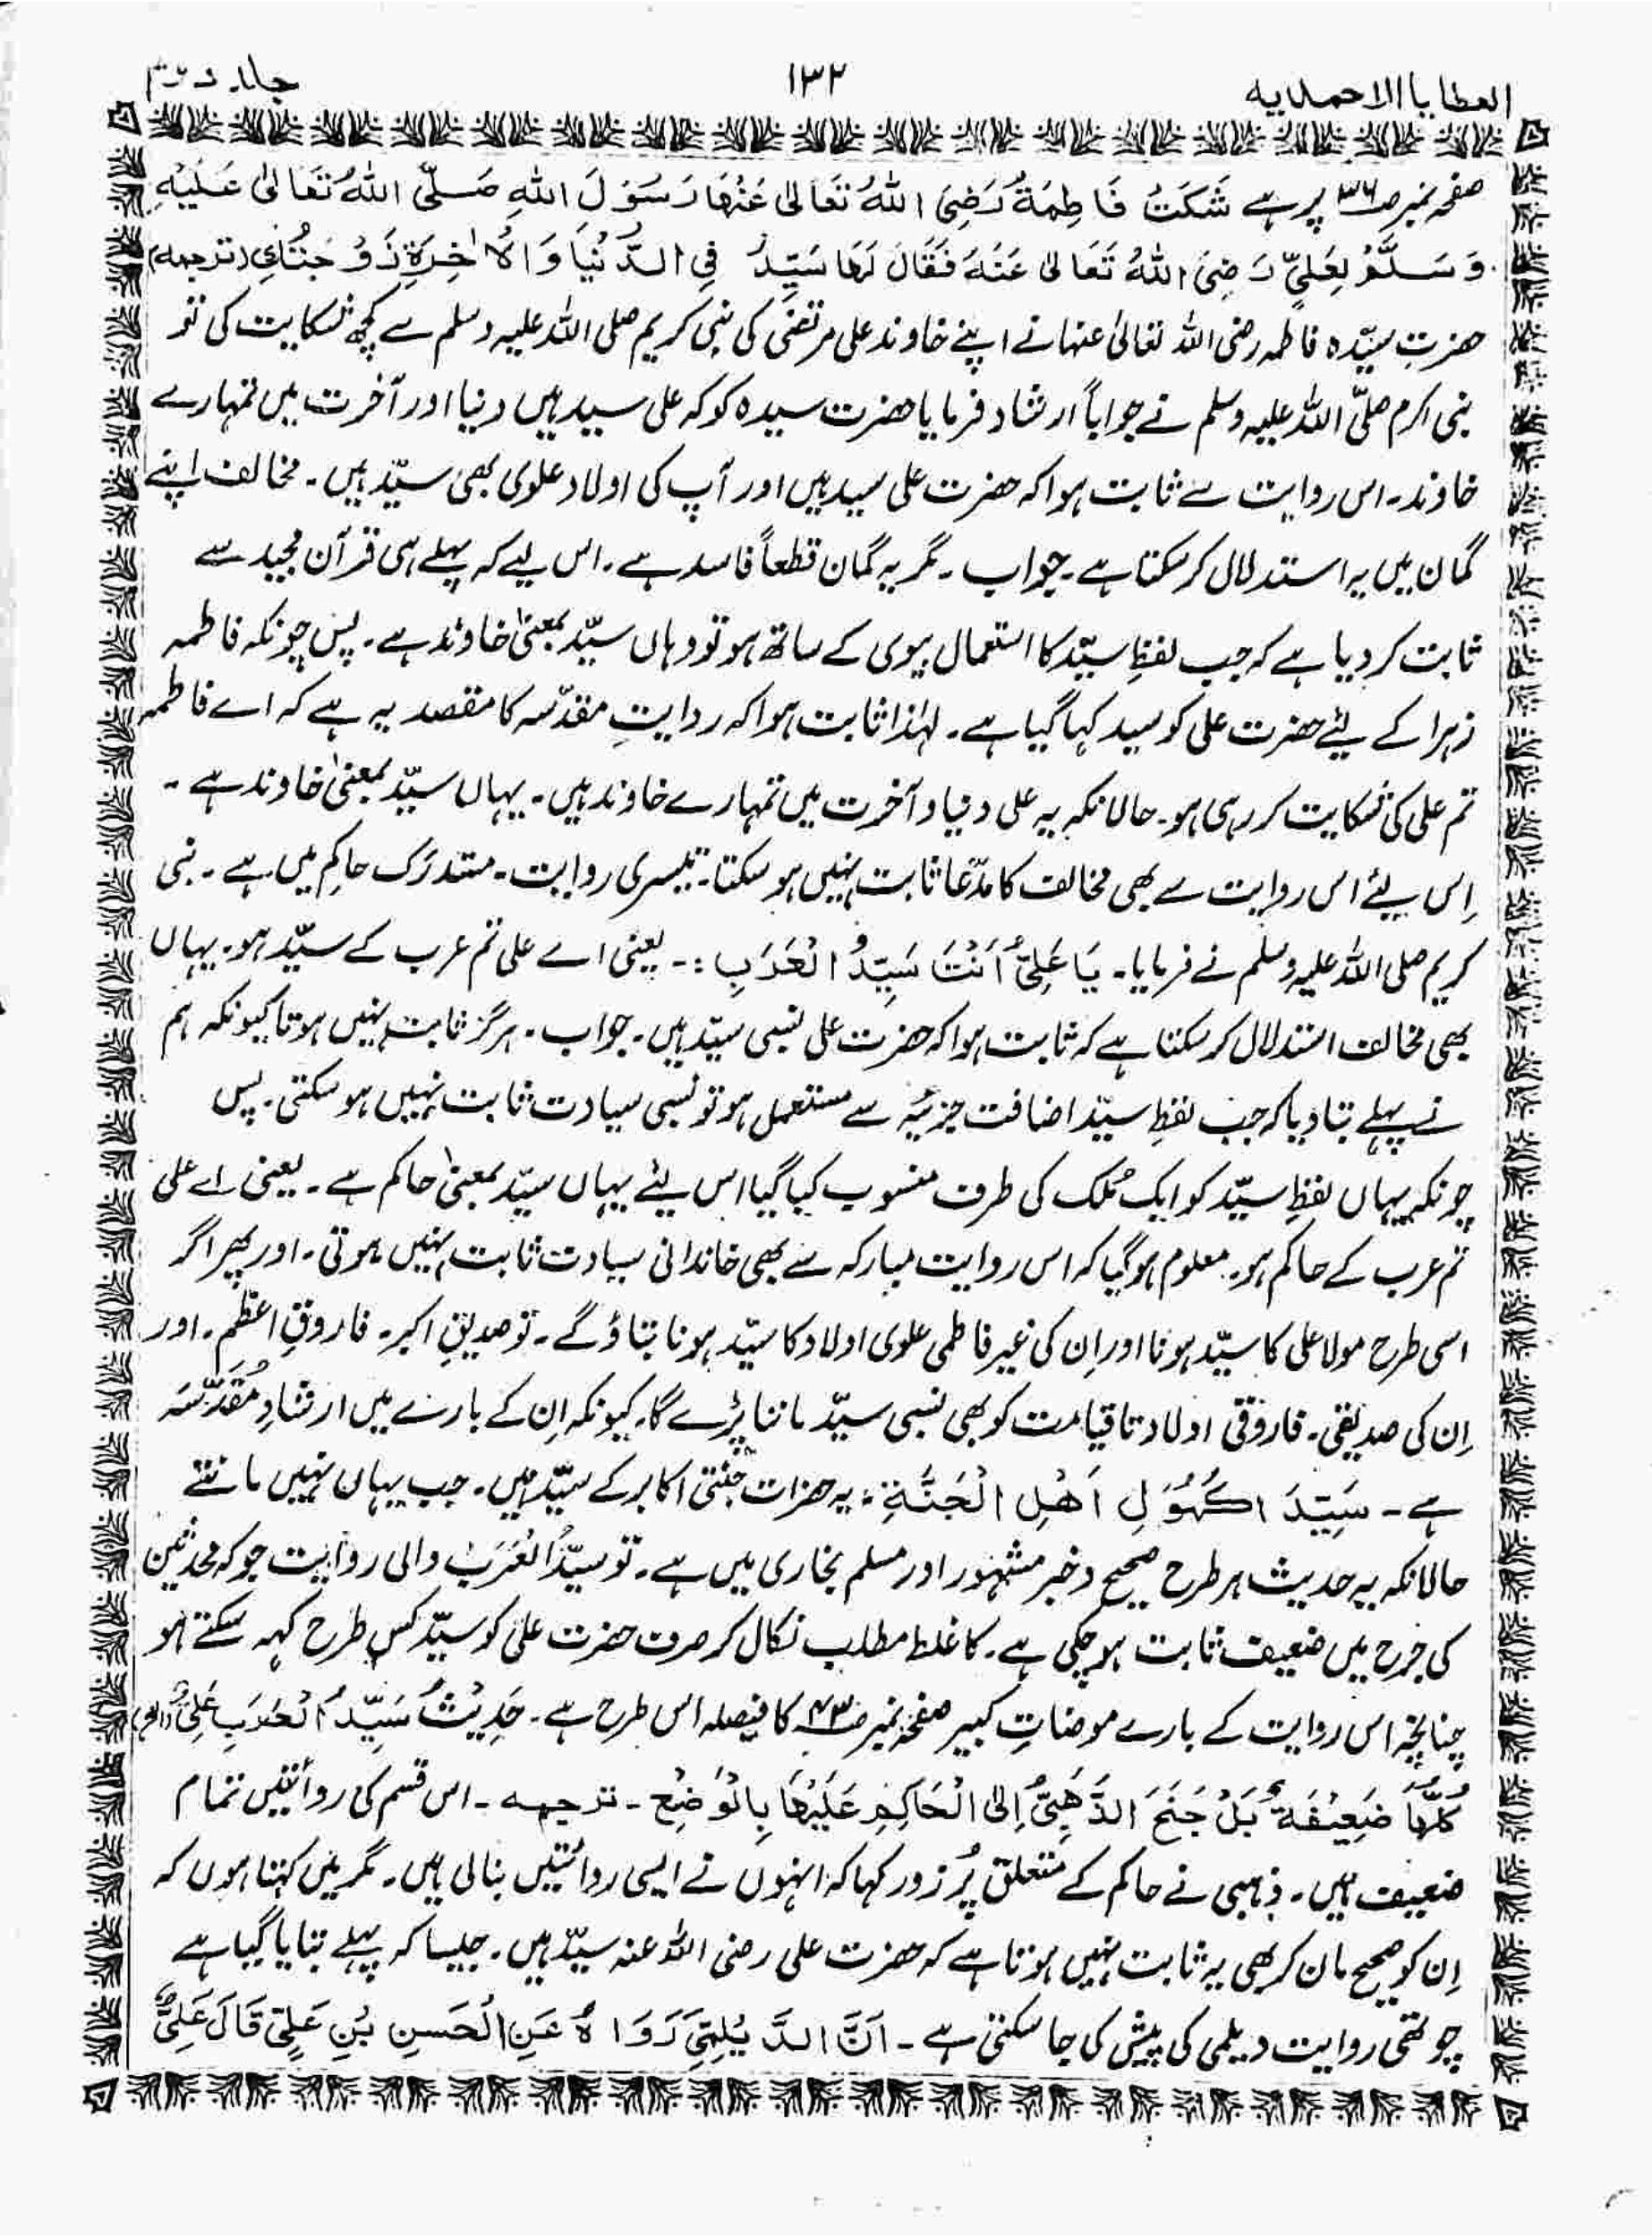 العطایا الاحمدیه
۱۳۲
جلد دوم
صفحہ نمبر ص۳۶ پر ہے شَکَتْ فَاطِمَۃُ رَضِیَ اللہُ تَعَالیٰ عَنْھَا رَسُوْلَ اللہِ صَلَّی اللہُ تَعَالیٰ عَلَیْہِ
وَسَلَّمَ بِعَلِیٍّ رَضِیَ اللہُ تَعَالیٰ عَنْہَ فَقَالَ لَھَا سَیِّدٌ فِی الدُّنْیَا وَالْاٰخِرَۃِ زَوْجَتُكِ (ترجمہ)
حضرت سیّدہ فاطمہ رضی اللہ تعالیٰ عنہا نے اپنے خاوند علی مرتضیٰ کی نبی کریم صلی اللہ علیہ وسلم سے کچھ شکایت کی تو
نبی اکرم صلّی اللہ علیہ وسلم نے جواباً ارشاد فرمایا حضرت سیدہ کو کہ علی سید ہیں دنیا اور آخرت میں تمہارے
خاوند۔ اس روایت سے ثابت ہوا کہ حضرت علی سید ہیں اور آپ کی اولاد علوی بھی سیّد ہیں۔ مخالف اپنے
گمان میں یہ استدلال کر سکتا ہے۔ جواب۔ مگر یہ گمان قطعاً فاسد ہے۔ اس لیے کہ پہلے ہی قرآن مجید سے
ثابت کر دیا ہے کہ جب لفظِ سیّد کا استعمال بیوی کے ساتھ ہو تو وہاں سیّد بمعنیٰ خاوند ہے۔ پس چونکہ فاطمہ
زہرا کے لئے حضرت علی کو سید کہا گیا ہے۔ لہٰذا ثابت ہوا کہ روایتِ مقدّسہ کا مقصد یہ ہے کہ اے فاطمہ
تم علی کی شکایت کر رہی ہو۔ حالانکہ یہ علی دنیا و آخرت میں تمہارے خاوند ہیں۔ یہاں سیّد بمعنیٰ خاوند ہے ۔
اِس لیے اس روایت سے بھی مخالف کا مدّعا ثابت نہیں ہو سکتا۔ تیسری روایت۔ مستدرک حاکم میں ہے ۔ نبی
کریم صلی اللہ علیہ وسلم نے فرمایا۔ یَا عَلِیُّ اَنْتَ سَیِّدُ الْعَرَبِ :۔ یعنی اے علی تم عرب کے سیّد ہو۔ یہاں
بھی مخالف استدلال کر سکتا ہے کہ ثابت ہوا کہ حضرت علی نسبی سیّد ہیں۔ جواب۔ ہرگز ثابت نہیں ہوتا کیونکہ ہم
نے پہلے بتا دیا کہ جب لفظِ سیّد اضافت جزئیہ سے مستعمل ہو تو نسبی سیادت ثابت نہیں ہو سکتی۔ پس
چونکہ یہاں لفظِ سیّد کو ایک مُلک کی طرف منسوب کیا گیا اس لیے یہاں سیّد بمعنیٰ حاکم ہے۔ یعنی اے علی
تم عرب کے حاکم ہو۔ معلوم ہو گیا کہ اس روایت مبارکہ سے بھی خاندانی سیادت ثابت نہیں ہوتی۔ اور پھر اگر
اسی طرح مولا علی کا سیّد ہونا اور اِن کی غیر فاطمی علوی اولاد کا سیّد ہونا بتاؤ گے۔ تو صدیقِ اکبر۔ فاروقِ اعظم۔ اور
اِن کی صدیقی۔ فاروقی اولاد تا قیامت کو بھی نسبی سیّد ماننا پڑے گا۔ کیونکہ اِن کے بارے میں ارشادِ مُقَدَّسَہ
ہے ۔ سَیِّدَ اکُھُوْلِ اَھْلِ الْجَنَّۃِ : یہ حضرات جنّتی اکابر کے سیّد ہیں۔ جب یہاں نہیں مانتے
حالانکہ یہ حدیث ہر طرح صحیح و خبر مشہور اور مسلم بخاری میں ہے۔ تو سیّدُ الْعَرَبْ والی روایت جو کہ محدثین
کی جرح میں ضعیف ثابت ہو چکی ہے۔ کا غلط مطلب نکال کر صرف حضرت علی کو سیّد کس طرح کہہ سکتے ہو
چنانچہ اس روایت کے بارے موضوعاتِ کبیر صفحہ نمبر کا فیصلہ اس طرح ہے۔ حَدِیْثُ سَیِّدُ الْعَرَبِ عَلِیٌّ (الخ)
کُلُّھَا ضَعِیْفَۃٌ بَلْ جَنَحَ الذَّھَبِیُّ اِلیٰ الْحَاکِمِ عَلَیْھَا بِالْوَضْعِ ۔ ترجمہ ۔ اس قسم کی روائتیں تمام
ضعیف ہیں۔ ذہبی نے حاکم کے متعلق پُر زور کہا کہ انہوں نے ایسی روائتیں بنا لی ہیں۔ مگر میں کہتا ہوں کہ
اِن کو صحیح مان کر بھی یہ ثابت نہیں ہوتا ہے کہ حضرت علی رضی اللہ عنہ سیّد ہیں۔ جیسا کہ پہلے بتایا گیا ہے
چوتھی روایت دیلمی کی پیش کی جا سکتی ہے ۔ اَنَّ الدَّیْلَمِیَّ رَوَاہُ عَنِ الْحَسَنِ بْنِ عَلِیٍّ قَالَ عَلِیٌّ